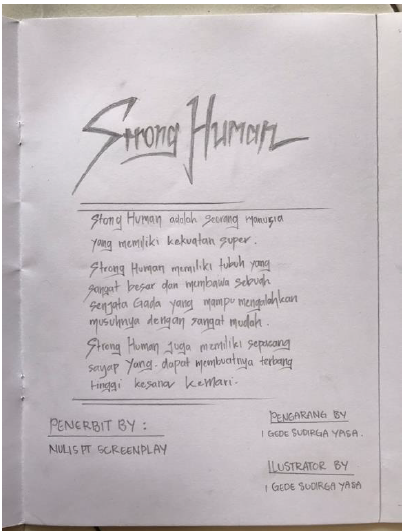 Strong Human
Stong Human adalah seorang manusia
yang memiliki kekuatan super.
Strong Human memiliki tubuh yang
sangat besar dan membawa sebuah
senjata Gada yang mampu mengalahkan
musuhnya dengan sangat mudah.
Strong Human juga memiliki sepasang
sayap yang dapat membuatnya terbang
tinggi kesana kemari.
PENERBIT BY :
NULIS PT SCREENPLAY
PENGARANG BY
I GEDE SUDIRGA YASA.
ILUSTRATOR BY
I GEDE SUDIRGA YASA